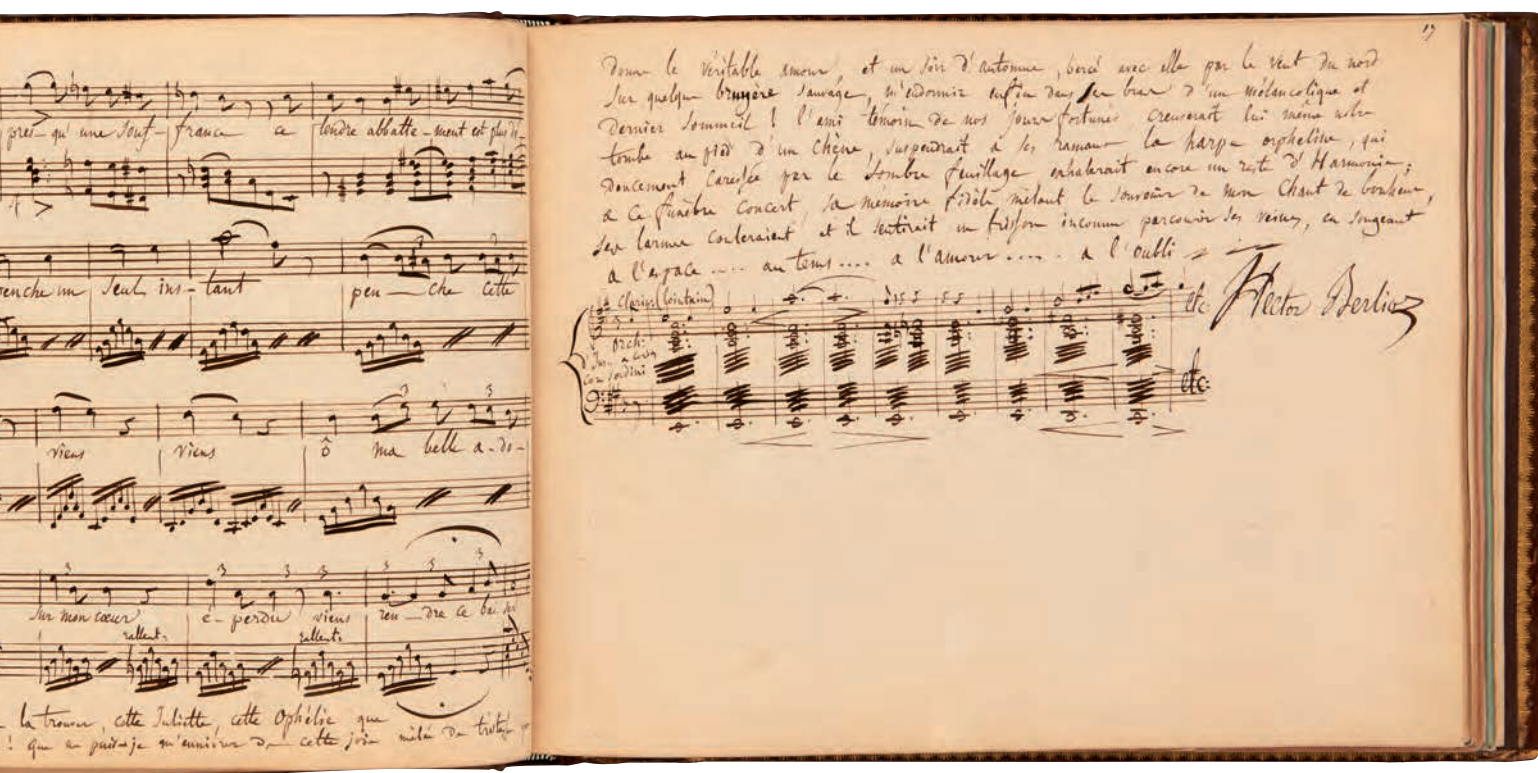 pres-qu'une souf-france ce tendre abbatte-ment est plus di-
penche un seul ins-tant peu-che cette
viens viens ô ma belle a-do-
sur mon cœur é-perdu viens ren-dre ce bai-ser
rallent: rallent:
la trouver, cette Juliette, cette Ophélie que
! que ne puis-je m'enivrer de cette joie mêlée de tristesse
17
Donne le véritable amour, et un soir d'automne, bercé avec elle par le vent du nord
sur quelque bruyère sauvage, m'endormir enfin dans ses bras d'un mélancolique et
dernier sommeil ! l'ami témoin de nos jours fortunés creuserait lui même notre
tombe au pied d'un chêne, suspendrait à ses rameaux la harpe orpheline, qui
doucement caressée par le sombre feuillage exhalerait encore un reste d'Harmonie ;
a ce funèbre concert, sa mémoire fidèle mêlant le souvenir de mon Chant de bonheur,
ses larmes couleraient et il sentirait un frisson inconnu parcourir ses veines, en songeant
a l'espace .... au tems .... a l'amour .... a l'oubli
Clarin: (lointain)
Orch:
con sordini
etc
etc:
Hector Berlioz